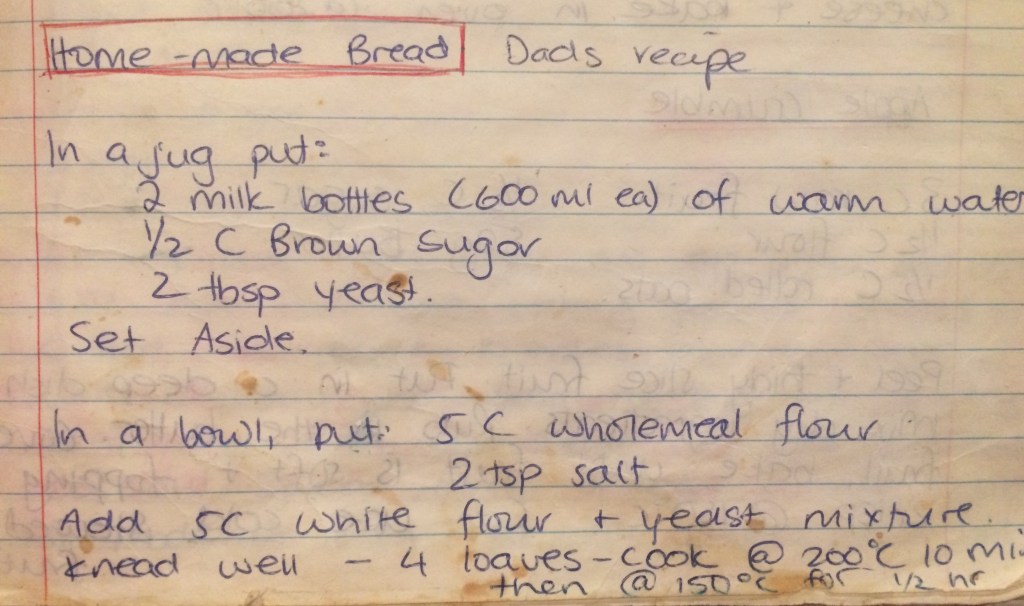 Home-made Bread Dads recipe
In a jug put:
2 milk bottles (600 ml ea) of warm water
1/2 C Brown sugar
2 tbsp yeast.
Set Aside.
In a bowl, put: 5 C wholemeal flour
2 tsp salt
Add 5C white flour + yeast mixture.
Knead well - 4 loaves - cook @ 200°C 10 mi
then @ 150°C for 1/2 hr